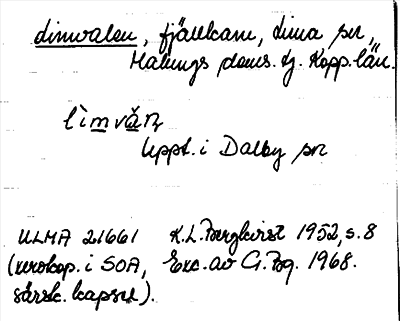 limvalen, fjällkam, Lima sn,
Malungs doms. tg. Kopp. län.
lìmvăṇ
Uppt. i Dalby sn
ULMA 21661 K.L. Bergkvist 1952, s. 8
(xerokop. i SOA, Exc. av G. Bg. 1968.
särsk. kapsel).